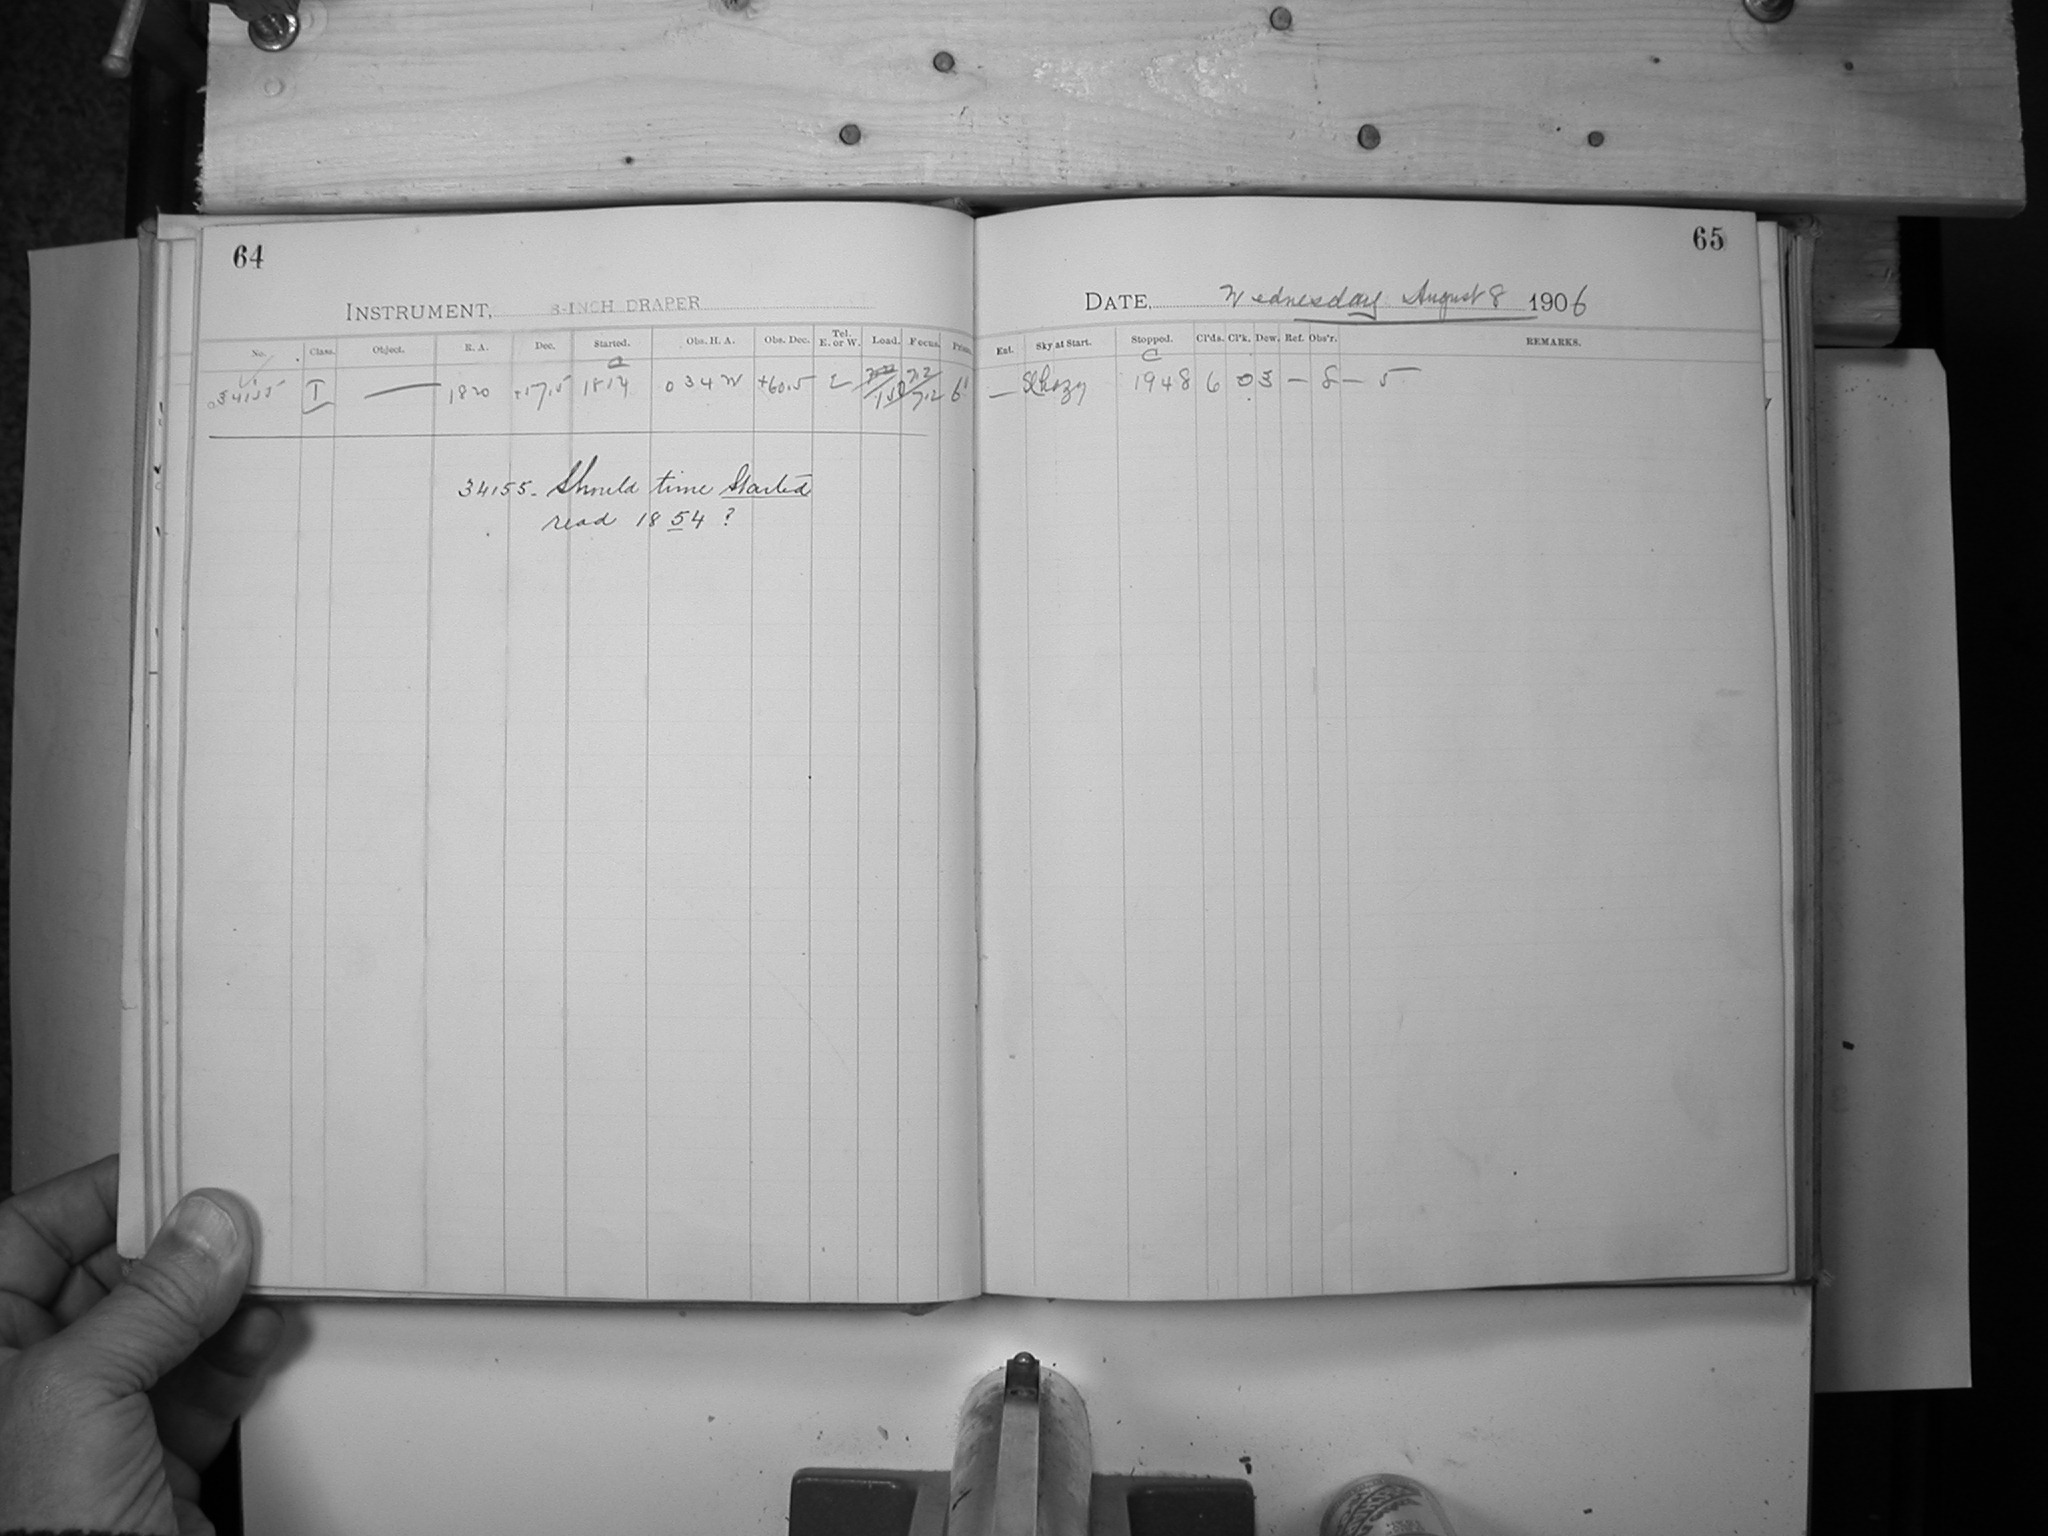 64
INSTRUMENT, 8-INCH DRAPER
No. Class. Object. R. A. Dec. Started. Obs. H. A. Obs. Dec. Tel. E. or W. Load. Focus. Prism.
34155 I — 1820 +17.5 0 34 W +60.5 7.2 6
34155. Should time Started
read 1854 ?
65
DATE, Wednesday August 8 1906
Ent. Sky at Start. Stopped. Cl'ds. Cl'k. Dew. Ref. Obs'r. REMARKS.
— C 1948 6 0 3 — 8 — 5